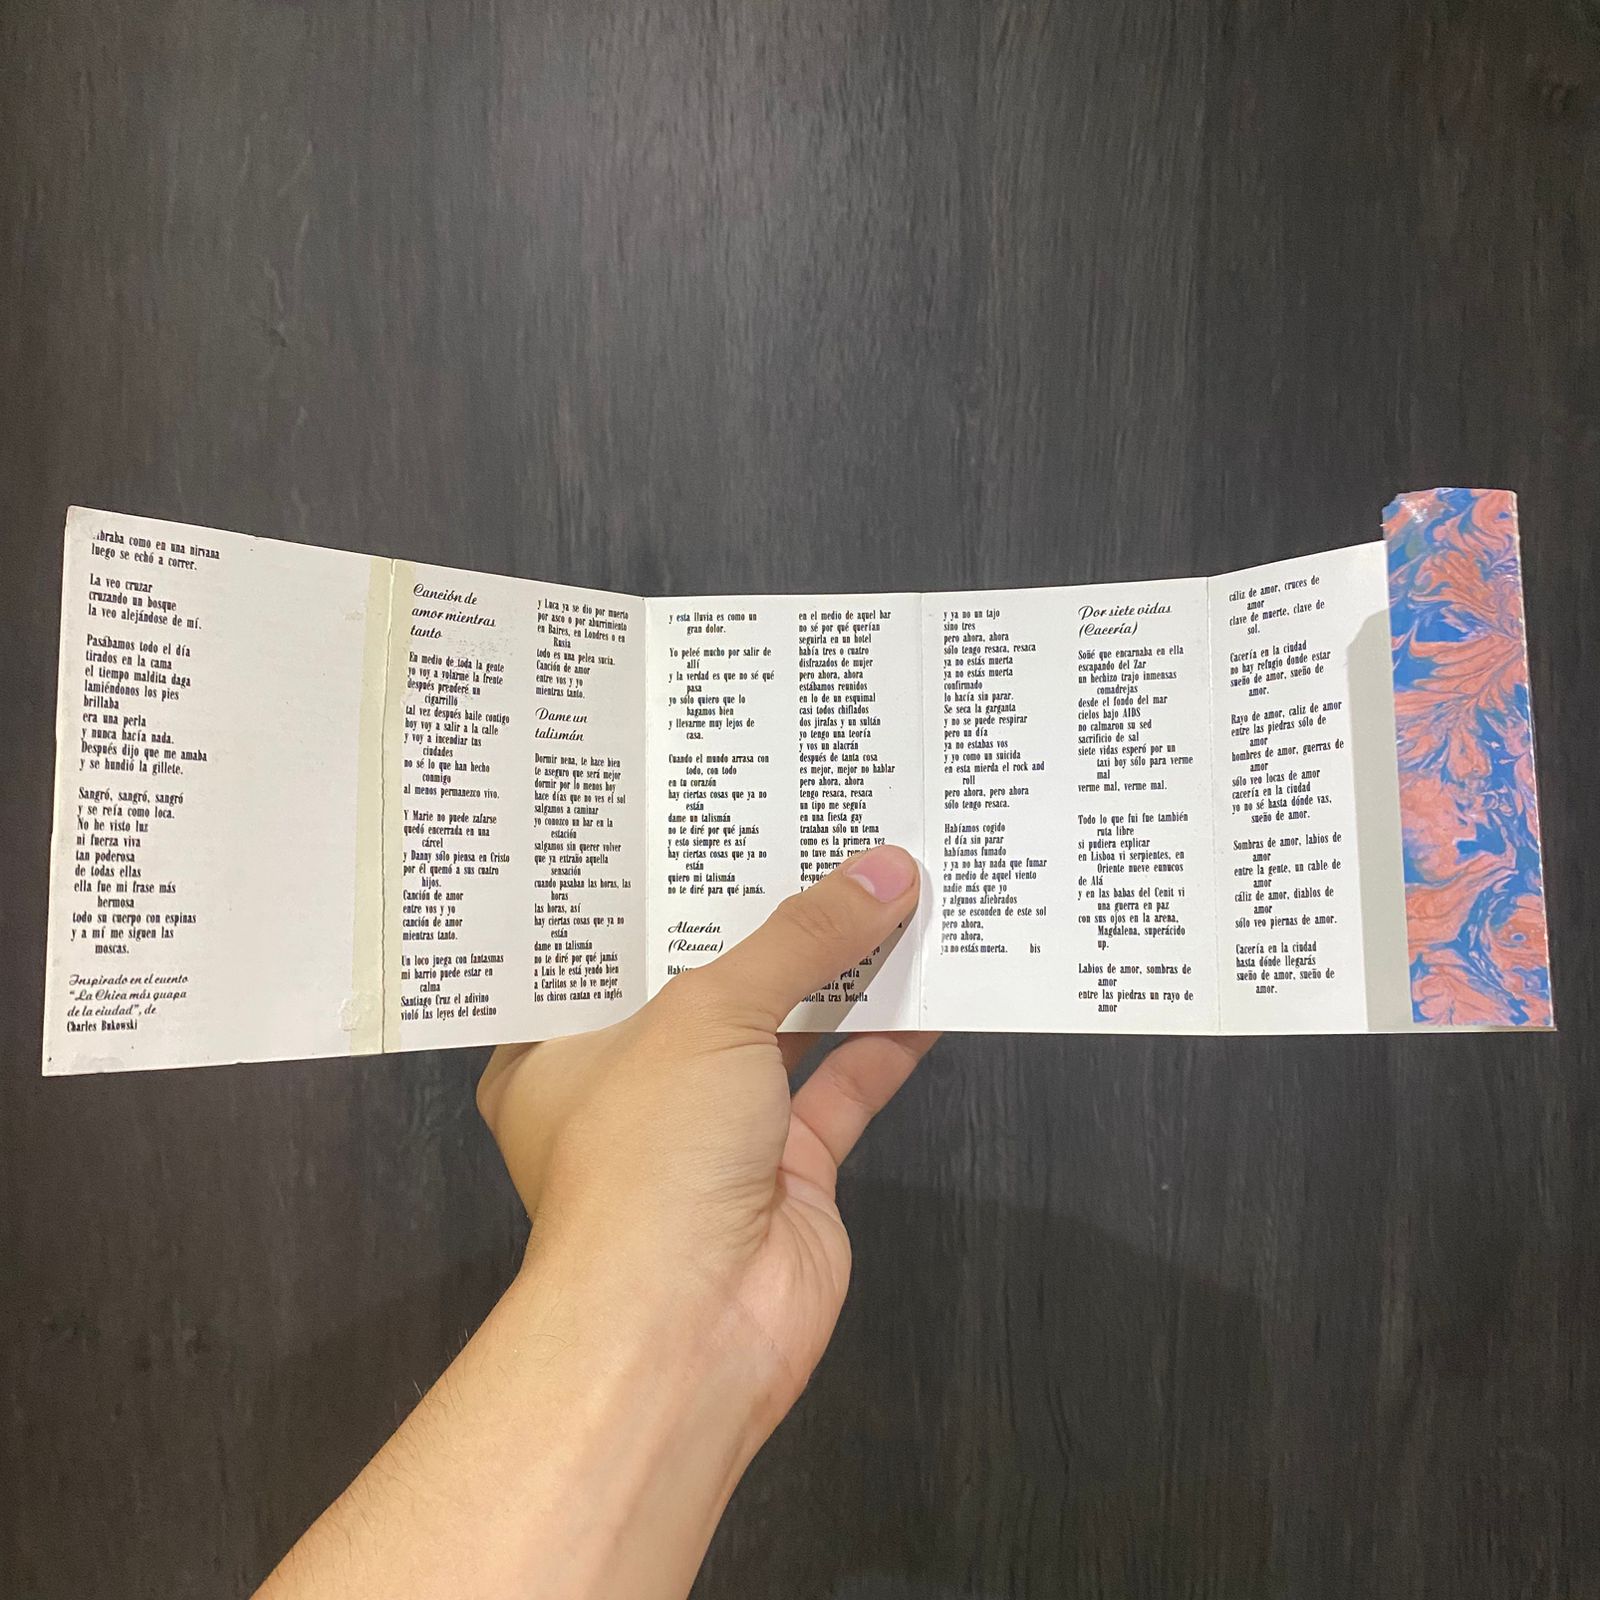 como en una nirvana
luego se echó a correr.
La veo cruzar
cruzando un bosque
la veo alejándose de mí.
Pasábamos todo el día
tirados en la cama
el tiempo maldita daga
lamiéndonos los pies
brillaba
era una perla
y nunca hacía nada.
Después dijo que me amaba
y se hundió la gillete.
Sangró, sangró, sangró
y se reía como loca.
No he visto luz
ni fuerza viva
tan poderosa
de todas ellas
ella fue mi frase más
hermosa
todo su cuerpo con espinas
y a mí me siguen las
moscas.
Inspirado en el cuento
"La Chica más guapa
de la ciudad", de
Charles Bukowski
Canción de
amor mientras
tanto
En medio de toda la gente
yo voy a volarme la frente
después prenderé un
cigarrillo
tal vez después baile contigo
hoy voy a salir a la calle
y voy a incendiar tus
ciudades
no sé lo que han hecho
conmigo
al menos permanezco vivo.
Y Marie no puede zafarse
quedó encerrada en una
cárcel
y Danny sólo piensa en Cristo
por él quemó a sus cuatro
hijos.
Canción de amor
entre vos y yo
canción de amor
mientras tanto.
Un loco juega con fantasmas
mi barrio puede estar en
calma
Santiago Cruz el adivino
violó las leyes del destino
y Luca ya se dio por muerto
por asco o por aburrimiento
en Baires, en Londres o en
Rusia
todo es una pelea sucia.
Canción de amor
entre vos y yo
mientras tanto.
Dame un
talismán
Dormir nena, te hace bien
te aseguro que será mejor
dormir por lo menos hoy
hace días que no ves el sol
salgamos a caminar
yo conozco un bar en la
estación
salgamos sin querer volver
que ya extraño aquella
sensación
cuando pasaban las horas, las
horas
las horas, así
hay ciertas cosas que ya no
están
dame un talismán
no te diré por qué jamás
a Luis le está yendo bien
a Carlitos se lo ve mejor
los chicos cantan en inglés
y esta lluvia es como un
gran dolor.
Yo peleé mucho por salir de
allí
y la verdad es que no sé qué
pasa
yo sólo quiero que lo
hagamos bien
y llevarme muy lejos de
casa.
Cuando el mundo arrasa con
todo, con todo
en tu corazón
hay ciertas cosas que ya no
están
dame un talismán
no te diré por qué jamás
y esto siempre es así
hay ciertas cosas que ya no
están
quiero mi talismán
no te diré para qué jamás.
Alacrán
(Resaca)
en el medio de aquel bar
no sé por qué querían
seguirla en un hotel
había tres o cuatro
disfrazados de mujer
pero ahora, ahora
estábamos reunidos
en lo de un esquimal
casi todos chiflados
dos jirafas y un sultán
yo tengo una teoría
y vos un alacrán
después de tanta cosa
es mejor, mejor no hablar
pero ahora, ahora
tengo resaca, resaca
un tipo me seguía
en una fiesta gay
trataban sólo un tema
como es la primera vez
no tuve más
que
qué
botella tras botella
y ya no un tajo
sino tres
pero ahora, ahora
sólo tengo resaca, resaca
ya no estás muerta
ya no estás muerta
confirmado
lo hacía sin parar.
Se seca la garganta
y no se puede respirar
pero un día
ya no estabas vos
y yo como un suicida
en esta mierda el rock and
roll
pero ahora, pero ahora
sólo tengo resaca.
Habíamos cogido
el día sin parar
habíamos fumado
y ya no hay nada que fumar
en medio de aquel viento
nadie más que yo
y algunos afiebrados
que se esconden de este sol
pero ahora,
pero ahora,
ya no estás muerta. bis
Por siete vidas
(Cacería)
Soñé que encarnaba en ella
escapando del Zar
un hechizo trajo inmensas
comadrejas
desde el fondo del mar
cielos bajo AIDS
no calmaron su sed
sacrificio de sal
siete vidas esperó por un
taxi boy sólo para verme
mal
verme mal, verme mal.
Todo lo que fui fue también
ruta libre
si pudiera explicar
en Lisboa vi serpientes, en
Oriente nueve eunucos
de Alá
y en las babas del Cenit vi
una guerra en paz
con sus ojos en la arena,
Magdalena, superácido
up.
Labios de amor, sombras de
amor
entre las piedras un rayo de
amor
cáliz de amor, cruces de
amor
clave de muerte, clave de
sol.
Cacería en la ciudad
no hay refugio donde estar
sueño de amor, sueño de
amor.
Rayo de amor, caliz de amor
entre las piedras sólo de
amor
hombres de amor, guerras de
amor
sólo veo locas de amor
cacería en la ciudad
yo no sé hasta dónde vas,
sueño de amor.
Sombras de amor, labios de
amor
entre la gente, un cable de
amor
cáliz de amor, diablos de
amor
sólo veo piernas de amor.
Cacería en la ciudad
hasta dónde llegarás
sueño de amor, sueño de
amor.